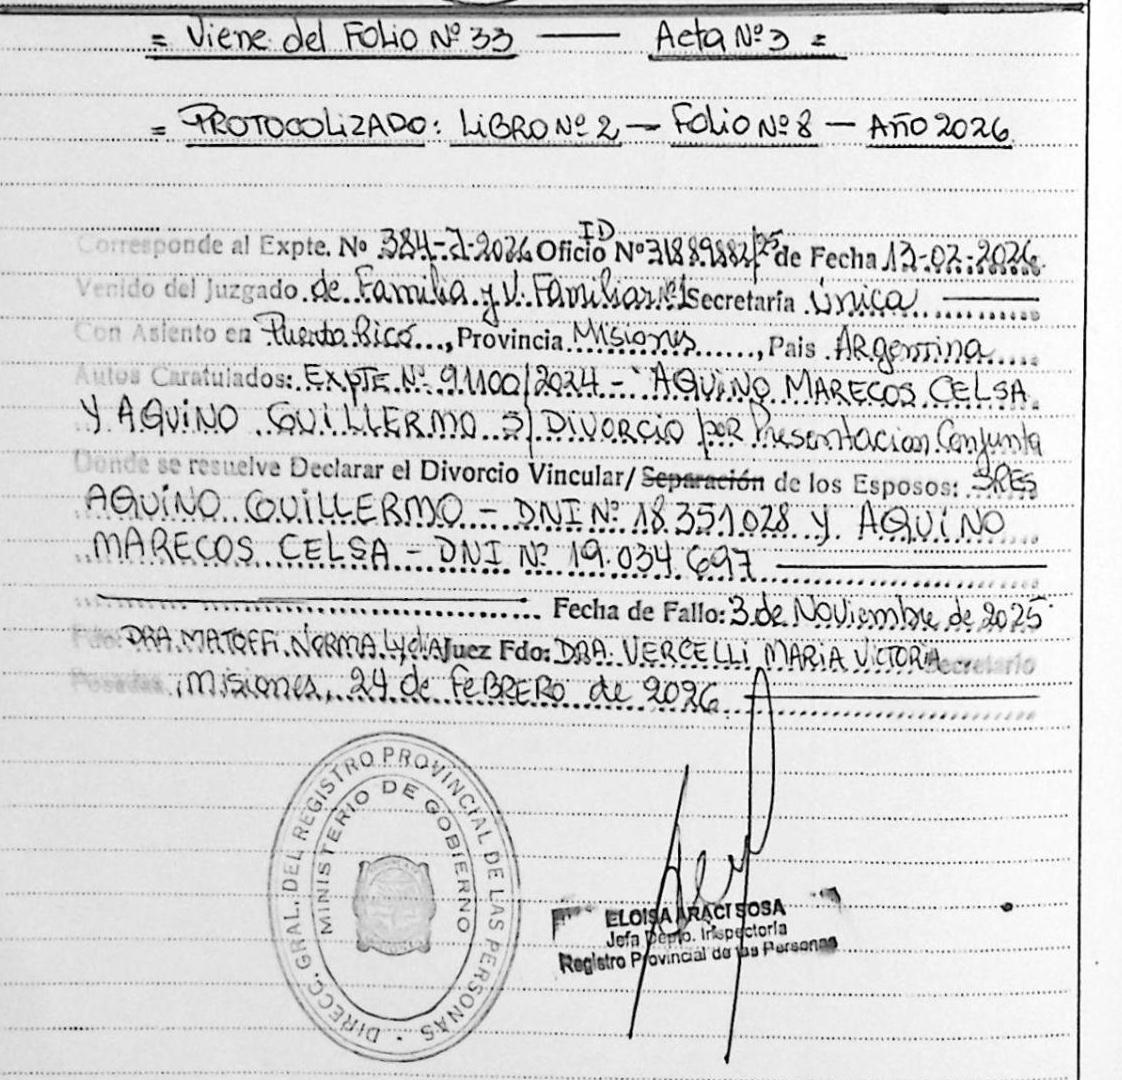 = Viene del Folio Nº 33 — Acta Nº 3 =
= PROTOCOLIZADO: LIBRO Nº 2 — Folio Nº 8 — AÑO 2026
Corresponde al Expte. Nº 384-J-2026 Oficio ID Nº 31889882/25 de Fecha 13-02-2026
Venido del Juzgado de Familia y V. Familiar Nº1 Secretaria Única
Con Asiento en Puerto Rico, Provincia Misiones, Pais Argentina
Autos Caratulados: EXPTE Nº 91100/2024 - "AQUINO MARECOS CELSA
Y AQUINO GUILLERMO S/ DIVORCIO por Presentacion Conjunta
Donde se resuelve Declarar el Divorcio Vincular/ Separación de los Esposos: SRES
AQUINO GUILLERMO - DNI Nº 18.351.028 Y AQUINO
MARECOS CELSA - DNI Nº 19.034.697
Fecha de Fallo: 3 de Noviembre de 2025
Fdo: DRA. MATOFFI NORMA LydiA Juez Fdo: DRA. VERCELLI MARIA VICTORIA Secretario
Posadas, Misiones, 24 de FEBRERO de 2026
DIRECC. GRAL. DEL REGISTRO PROVINCIAL DE LAS PERSONAS
MINISTERIO DE GOBIERNO
ELOISA ARACI SOSA
Jefa Depto. Inspectoria
Registro Provincial de las Personas